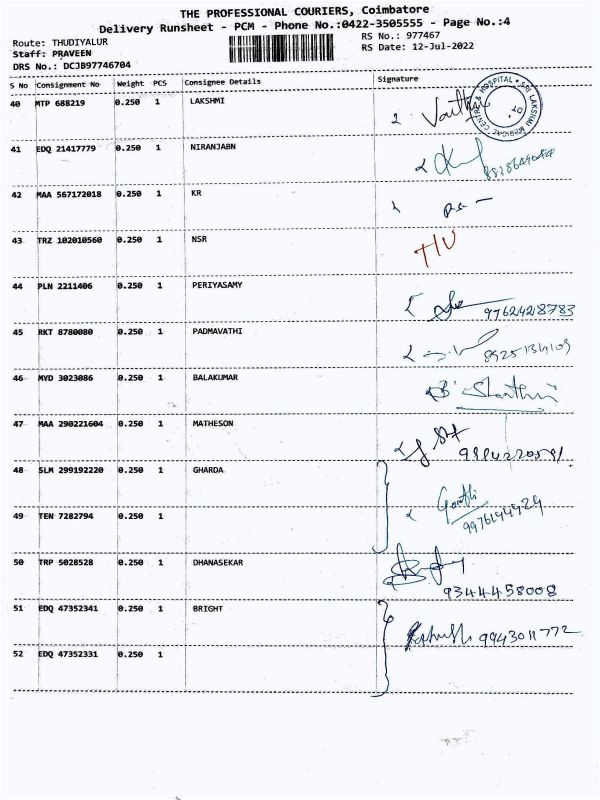 THE PROFESSIONAL COURIERS, Coimbatore
Delivery Runsheet - PCM - Phone No.:0422-3505555 - Page No.:4
Route: THUDIYALUR
RS No.: 977467
Staff: PRAVEEN
RS Date: 12-Jul-2022
DRS No.: DCJB97746704
S No Consignment No Weight PCS Consignee Details Signature
40 MTP 688219 0.250 1 LAKSHMI
41 EDQ 21417779 0.250 1 NIRANJABN
42 MAA 567172018 0.250 1 KR
43 TRZ 102010560 0.250 1 NSR
44 PLN 2211406 0.250 1 PERIYASAMY
9762428783
45 RKT 8780080 0.250 1 PADMAVATHI
46 MYD 3023086 0.250 1 BALAKUMAR
47 MAA 290221604 0.250 1 MATHESON
48 SLM 299192220 0.250 1 GHARDA
49 TEN 7282794 0.250 1
50 TRP 5028528 0.250 1 DHANASEKAR
9344458008
51 EDQ 47352341 0.250 1 BRIGHT
9943011772
52 EDQ 47352331 0.250 1